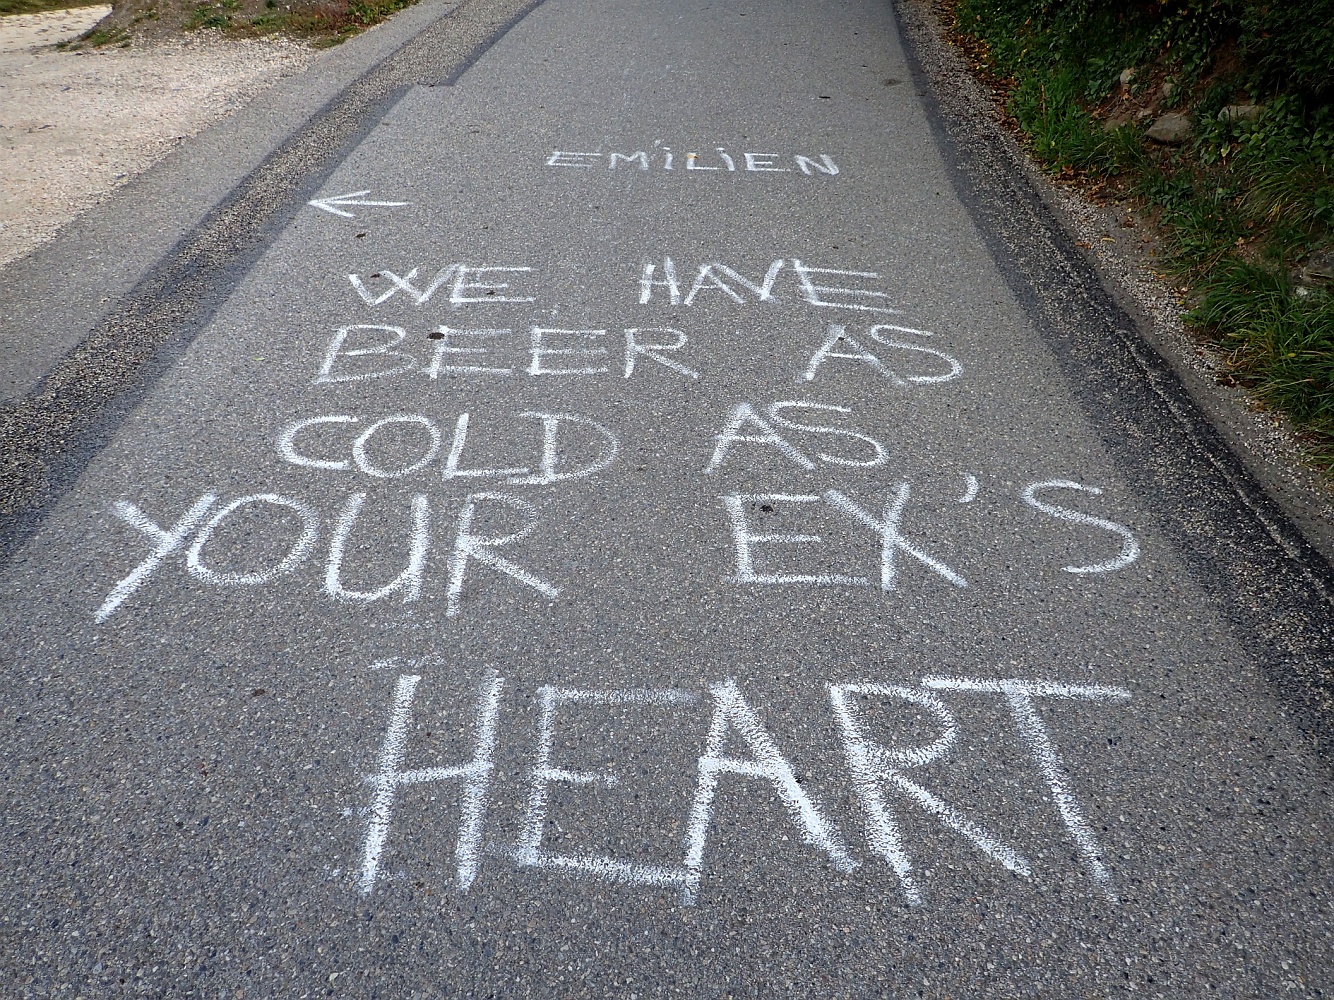 EMILIEN
WE HAVE
BEER AS
COLD AS
YOUR EX'S
HEART